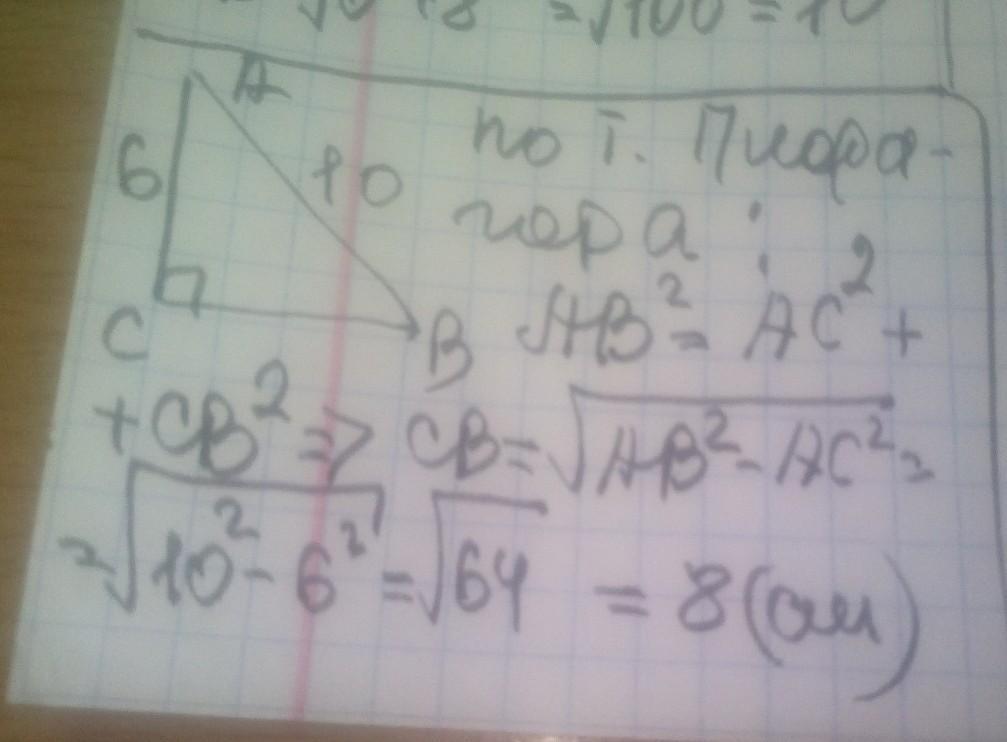 +8 = √100 = 10
A
6
10
C
B
по т. Пифа-
гора :
AB² = AC² +
+ CB² => CB = √AB² - AC² =
= √10² - 6² = √64 = 8 (см)